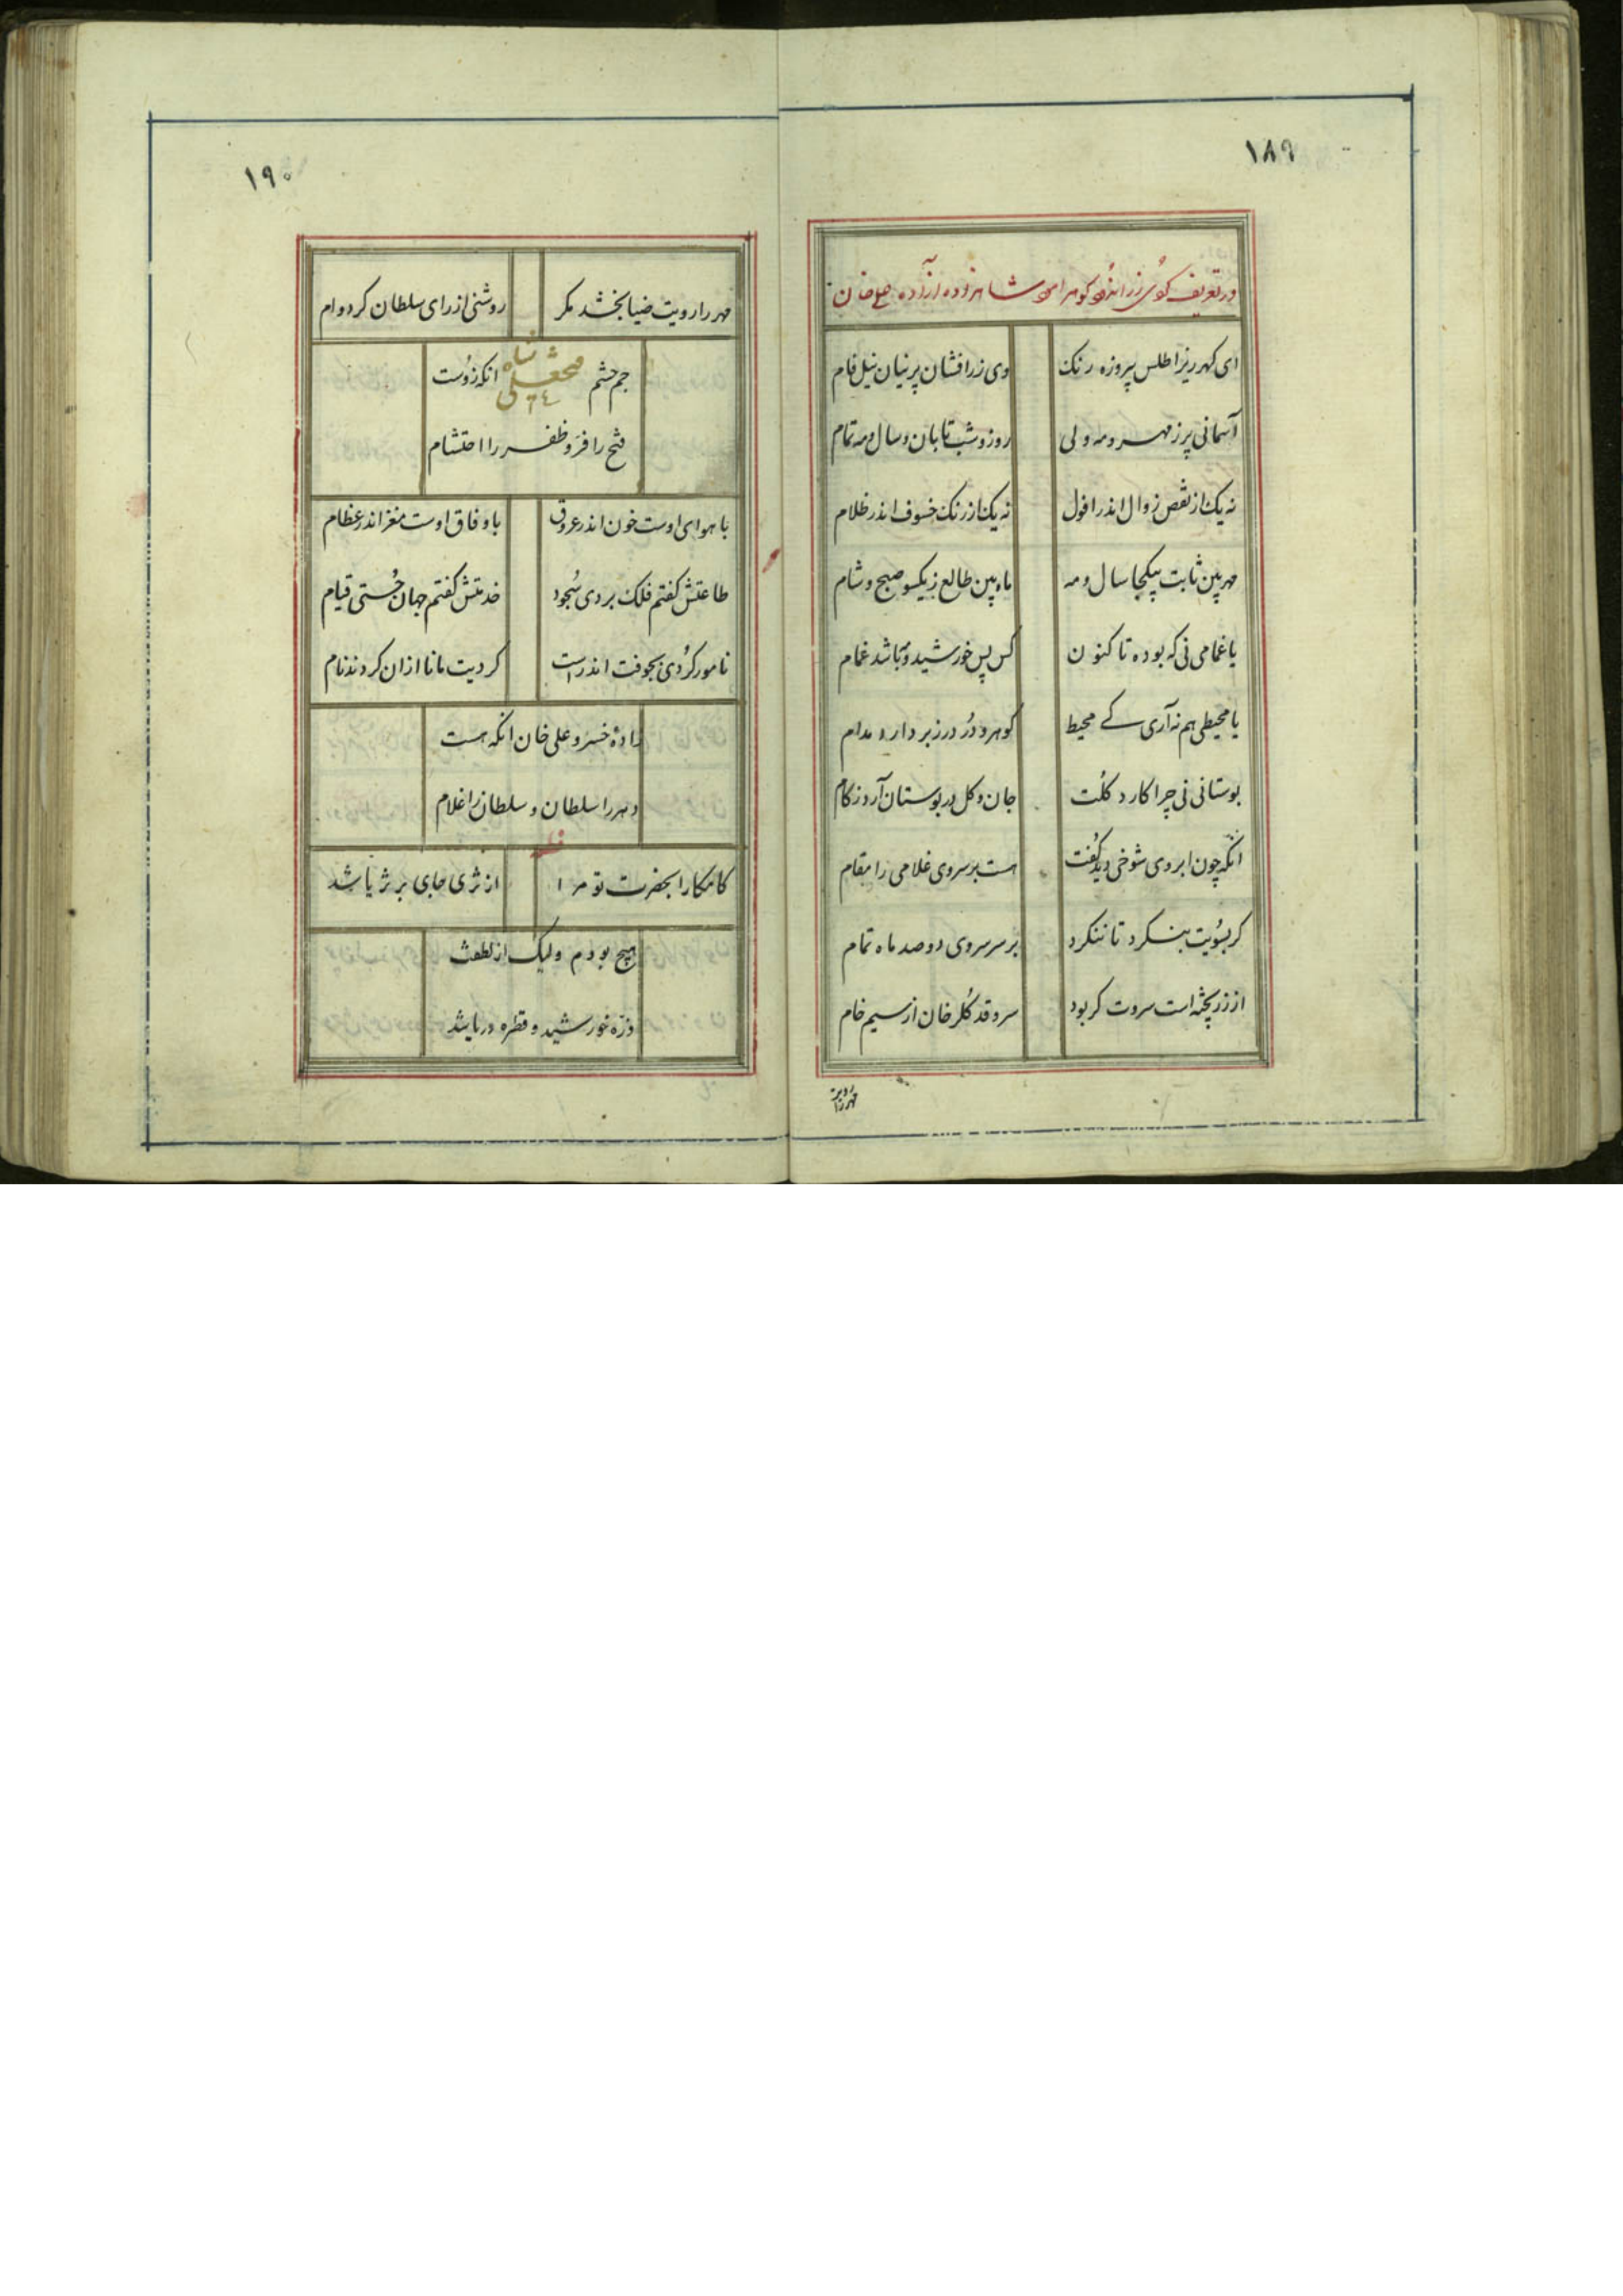 ۱۸۹
در تعریف کوی زر اندود کوهر آمود شاهزاده آزاده علی خان
ای کهر ریز اطلس پیروزه رنک وی زر افشان پرنیان نیل فام
آسمانی پر ز مهر و مه ولی روز و شب تابان و سال و مه تمام
نه یک از نقص زوال اندر افول نه یک از رنک خسوف اندر ظلام
مهر بین ثابت بیکجا سال و مه ماه بین طالع ز یکسو صبح و شام
یا غمامی نی که بوده تا کنون کس پس خورشید و مه باشد غمام
یا محیطی هم نه آری کے محیط کوهر و در در زبر دارد مدام
بوستانی نی چرا کارد کلت جان و کل در بوستان آرد زکام
انکه چون ابروی شوخی دید کفت هست بر سروی غلامی را مقام
کر بسویت بنکرد تا ننکرد بر سر سروی دو صد ماه تمام
از زر پخته است سروت کر بود سرو قد کلرخان از سیم خام
مهر را رویت
۱۹۰
مهر را رویت ضیا بخشد مکر روشنی از رای سلطان کرد وام
جم حشم فتحعلی شاه انکه زوست
فتح را فر و ظفر را احتشام
با هوای اوست خون اندر عروق با وفاق اوست مغز اندر عظام
طاعتش کفتم فلک بردی سجود خدمتش کفتم جهان جستی قیام
نامور کردی بجوفت اندر است کردیت مانا ازان کردند نام
زادهٔ خسرو علی خان انکه هست
دهر را سلطان و سلطان را غلام
کامکارا بحضرت تو مرا از ثری جای بر ثریا شد
هیچ بودم ولیک از لطفت
ذره خورشید و قطره دریا شد